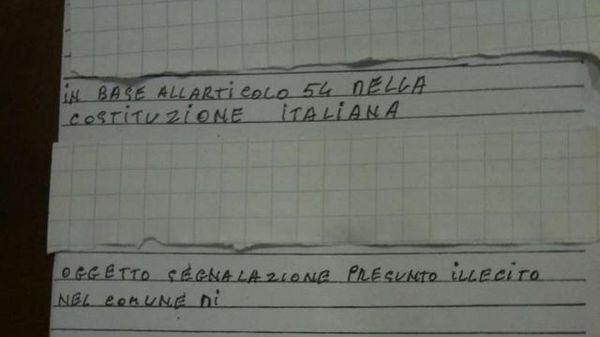 iN BASE ALLARTiCOLO 54 DELLA
COSTiTUZiONE iTALiANA
OGGETTO SEGNALAZiONE PRESUNTO iLLECiTO
NEL COMUNE Di